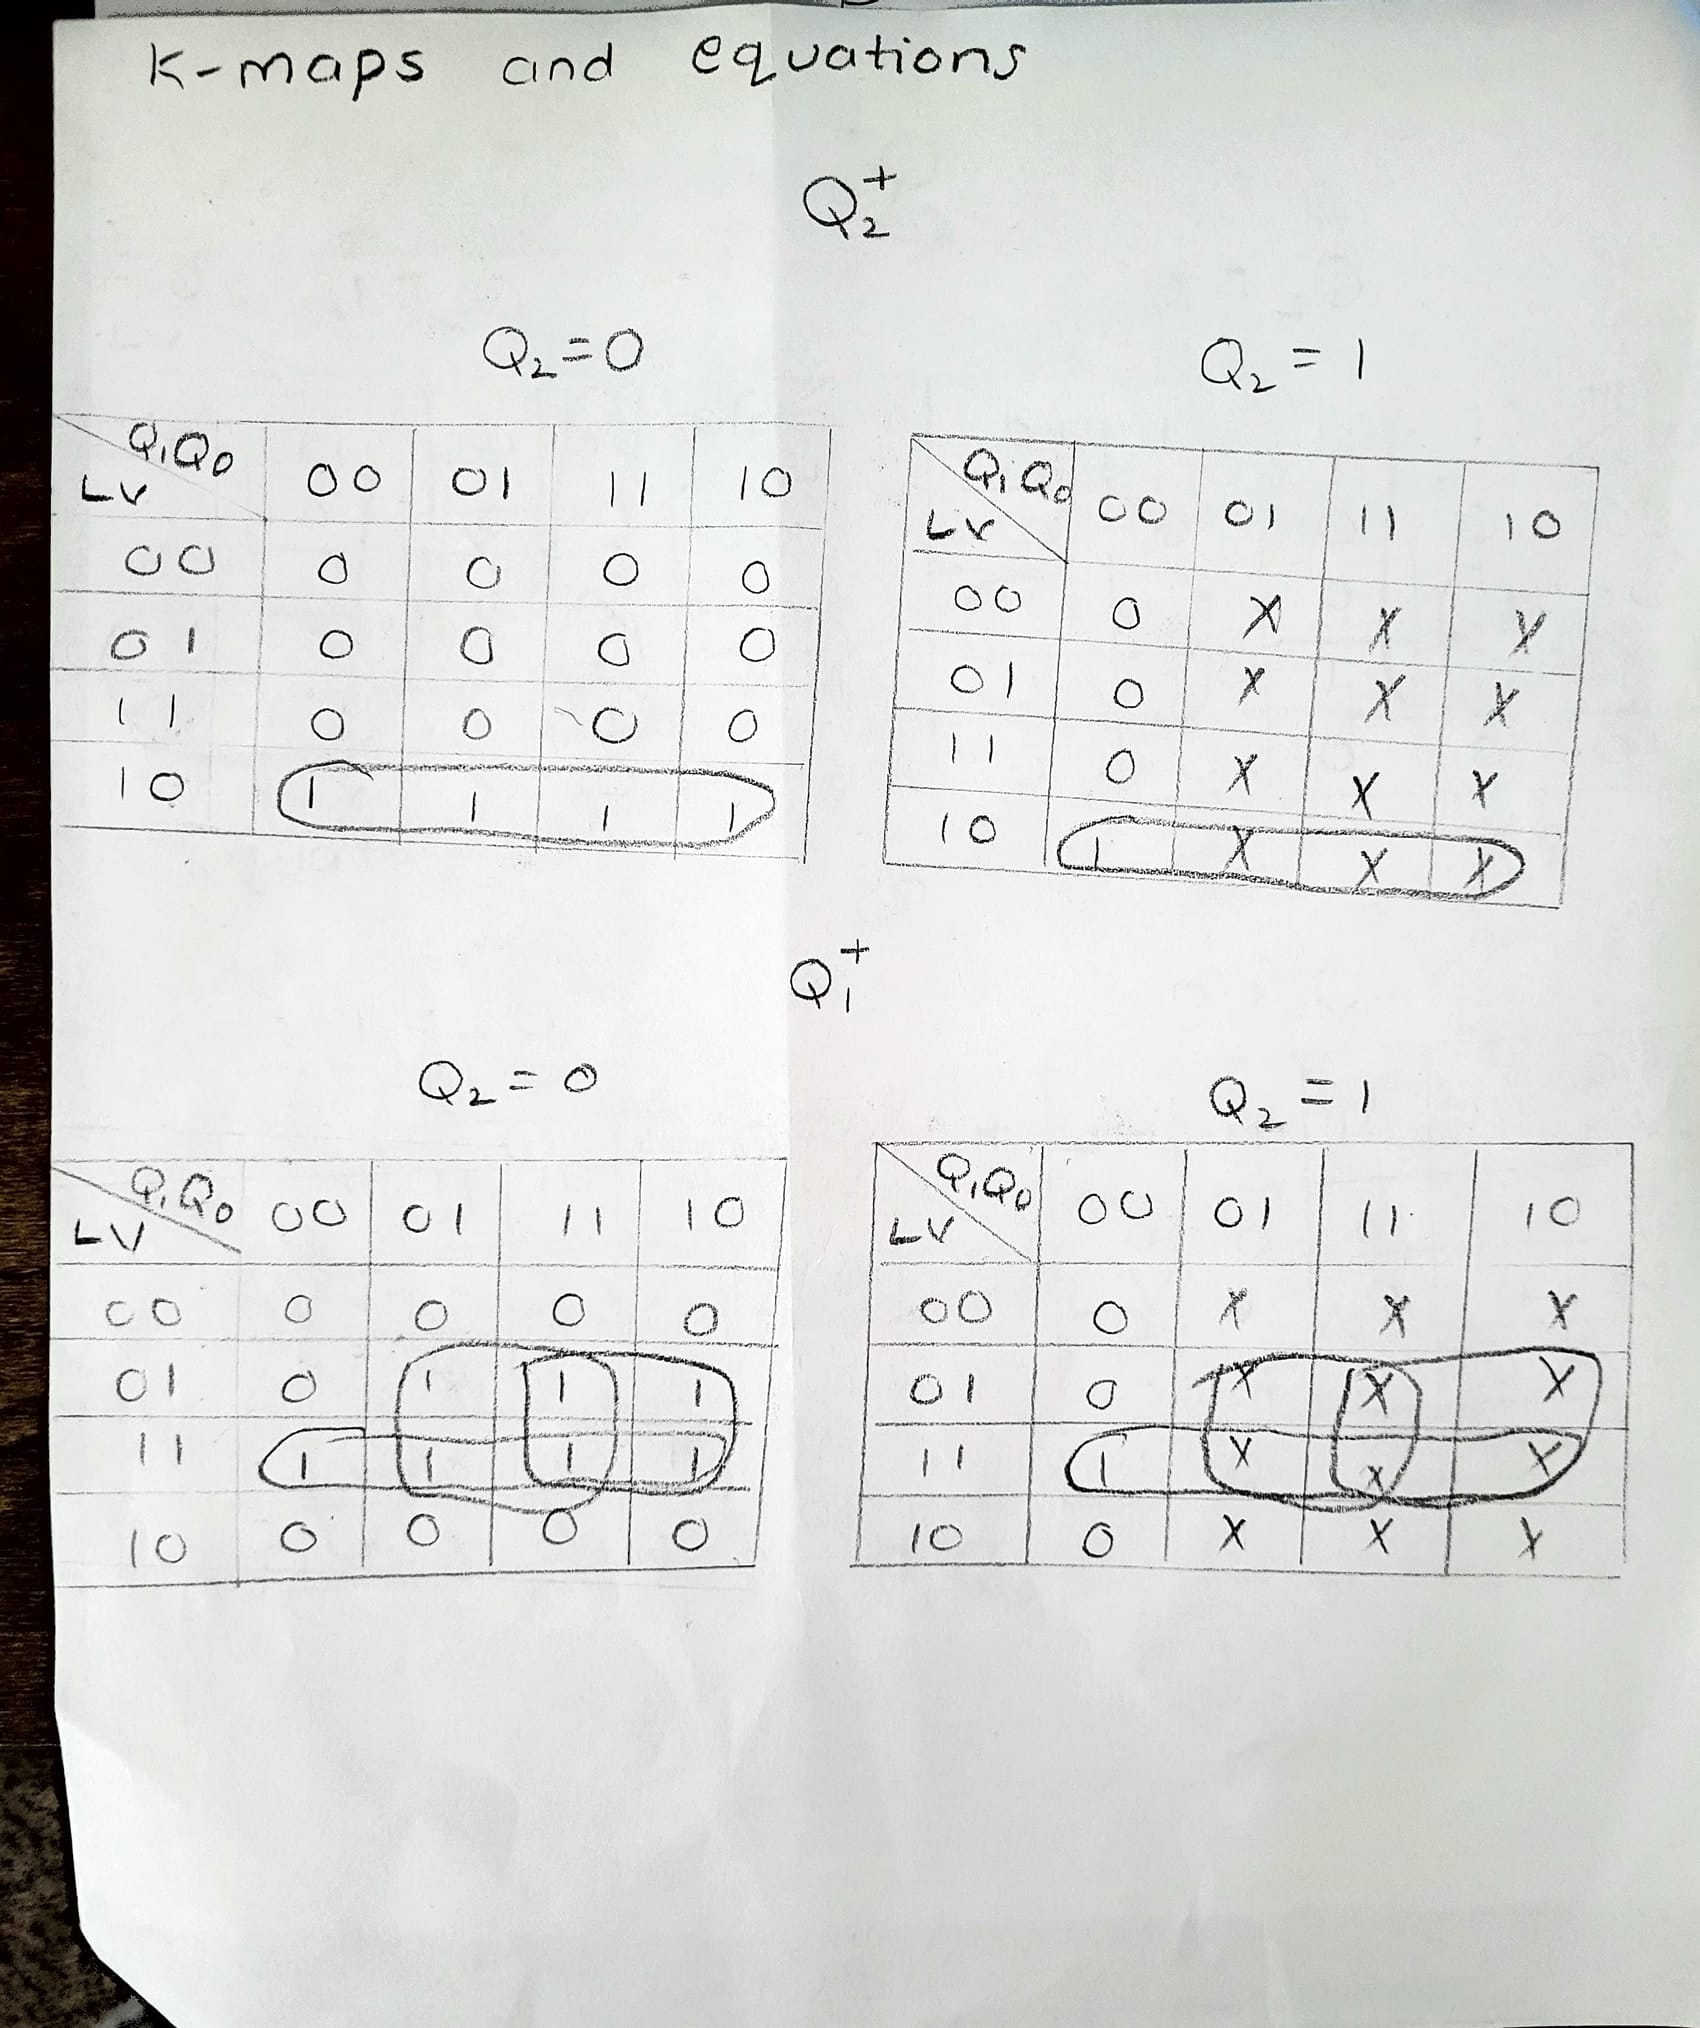 K-maps and equations
Q₂⁺
Q₂=0
Q₁Q₀
LV
00 01 11 10
00 0 0 0 0
01 0 0 0 0
11 0 0 0 0
10 1 1 1 1
Q₂ = 1
Q₁Q₀
LV
00 01 11 10
00 0 X X X
01 0 X X X
11 0 X X X
10 1 X X X
Q₁⁺
Q₂ = 0
Q₁Q₀
LV
00 01 11 10
00 0 0 0 0
01 0 1 1 1
11 1 1 1 1
10 0 0 0 0
Q₂ = 1
Q₁Q₀
LV
00 01 11 10
00 0 X X X
01 0 X X X
11 1 X X X
10 0 X X X